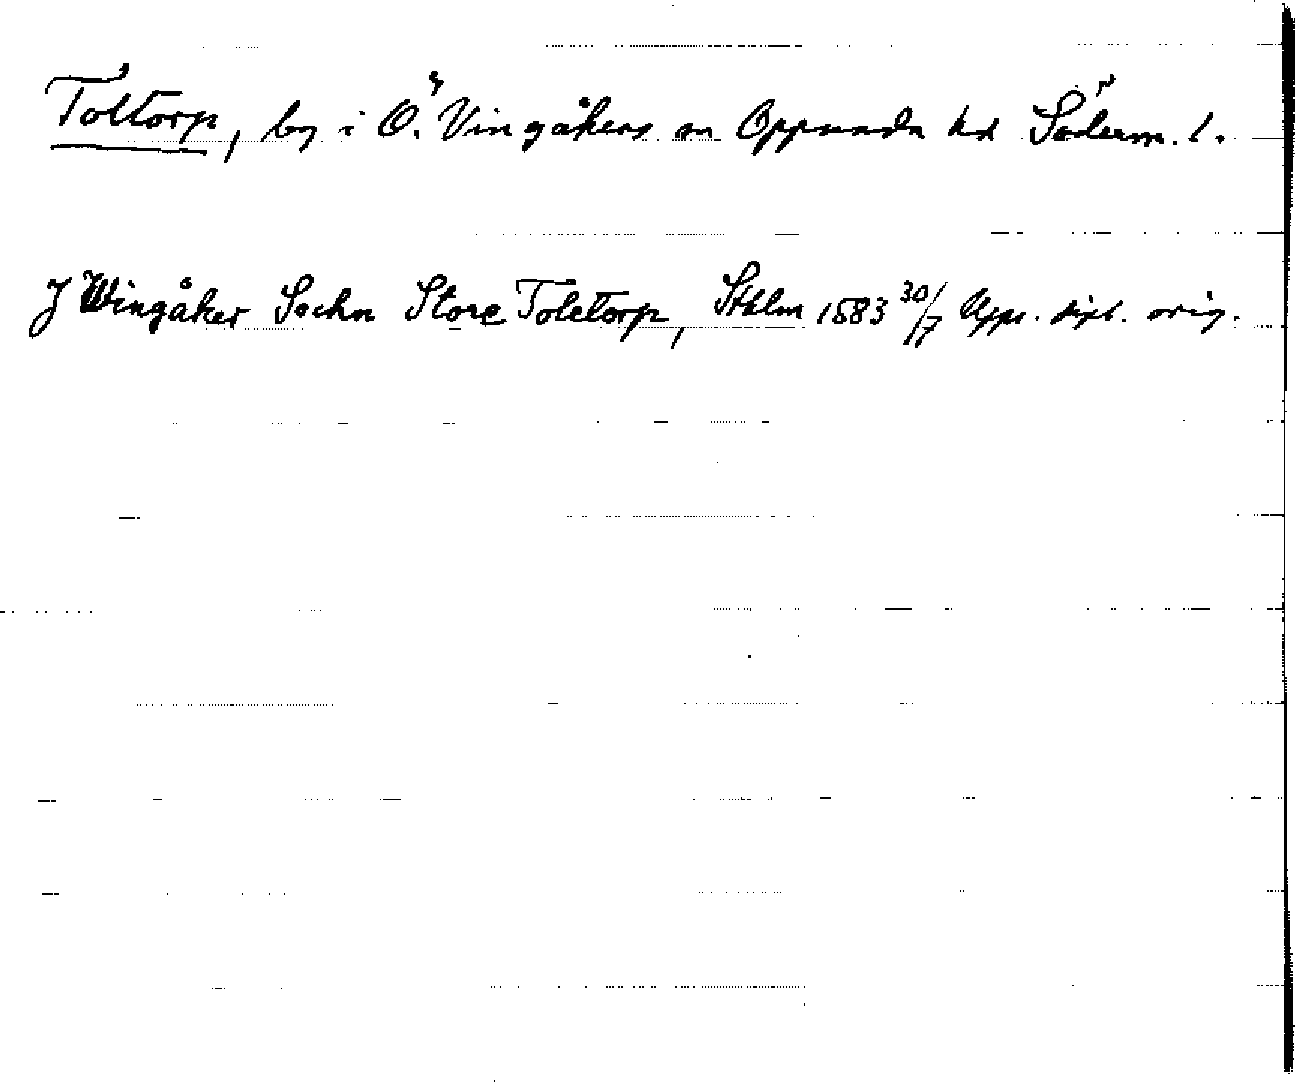 Toltorp, by i Ö. Vingåkers sn Oppunda hd Söderm. l.
J Wingåker Sochn Store Toletorp, Sthlm 1583 30/7 Upps. dipl. orig.